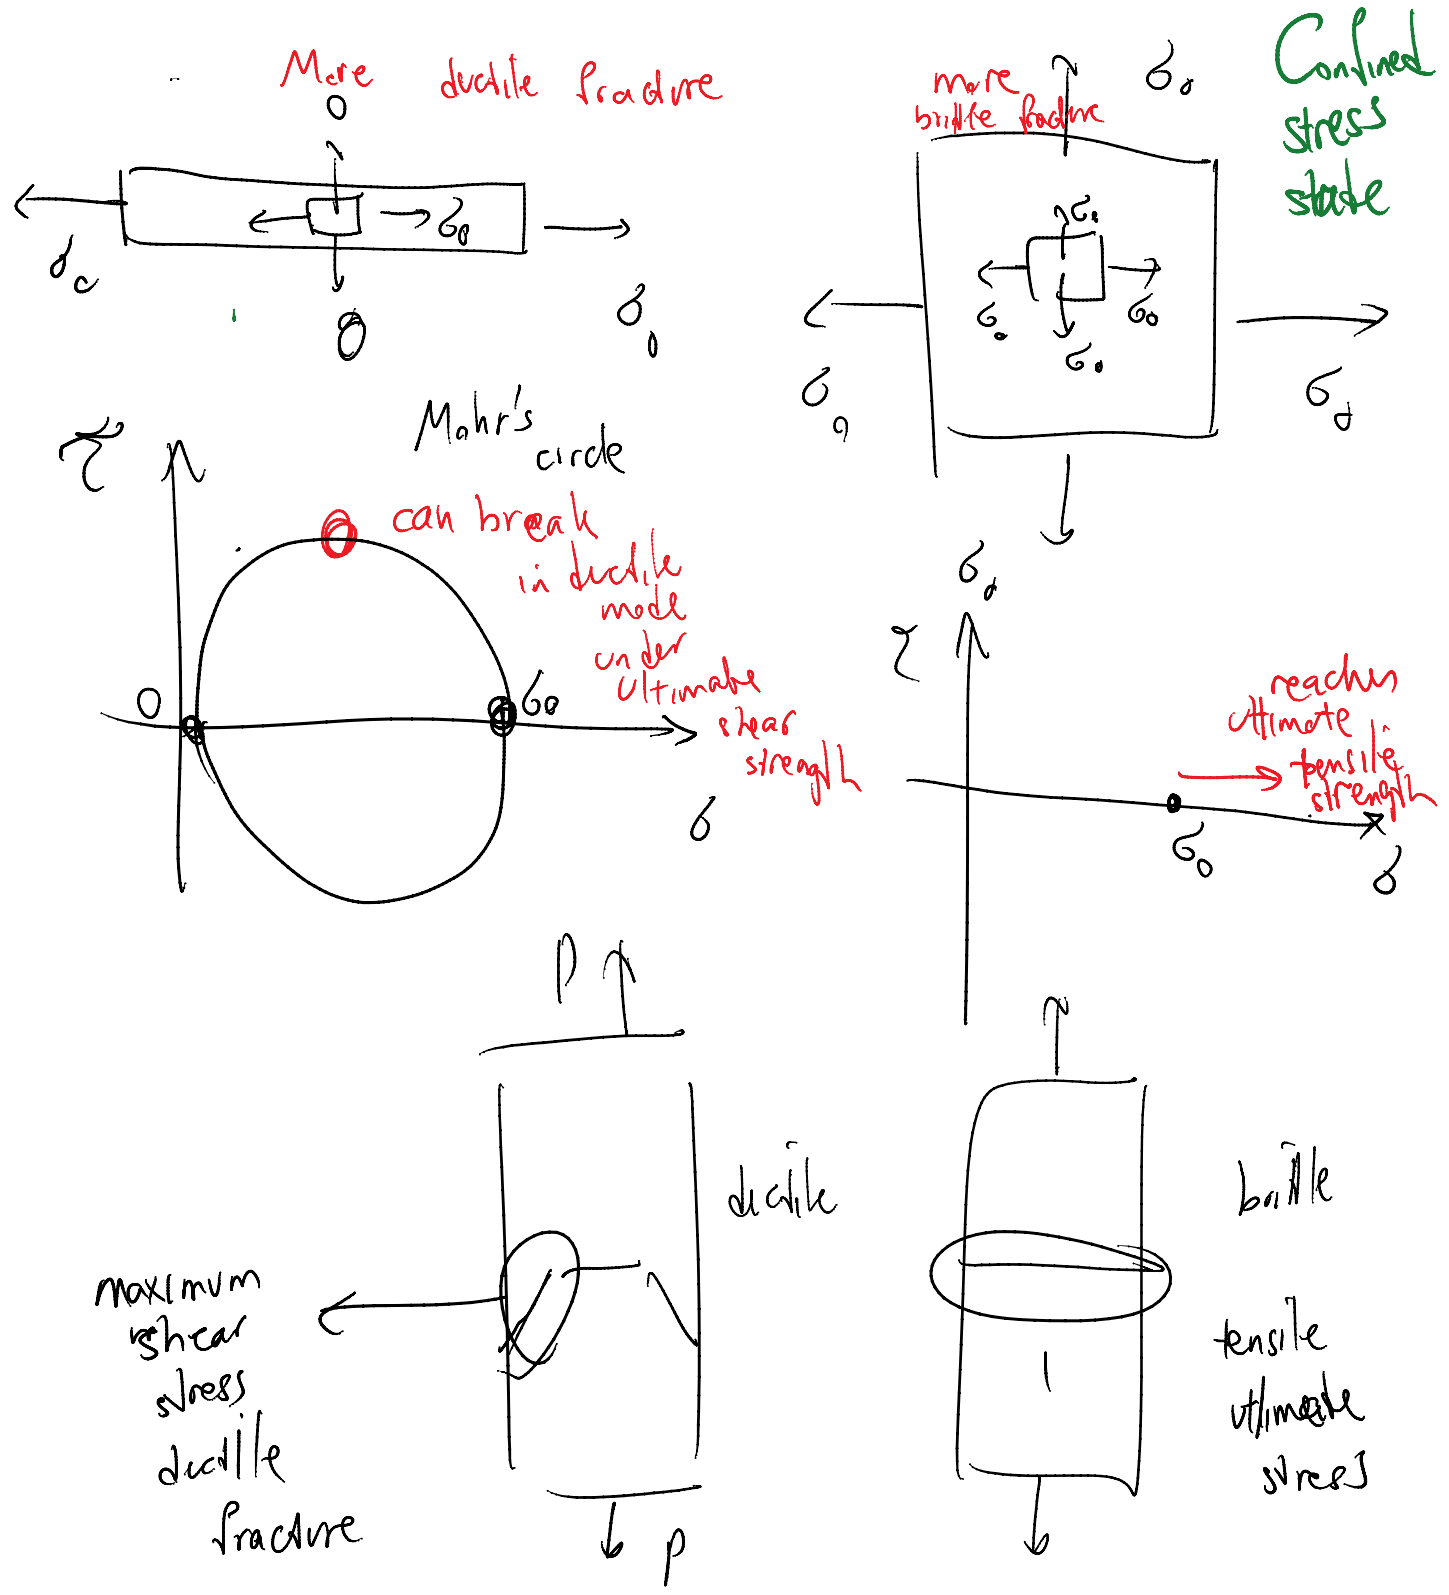 More ductile fracture
0
σ0
σ0
0
σ0
more
brittle fracture
σ0
Confined
stress
state
σ0
σ0
σ0
σ0
σ0
σ0
σ0
Mohr's
circle
τ
can break
in ductile
mode
under
ultimate
shear
strength
0
σ0
σ
τ
reaches
ultimate
tensile
strength
σ0
σ
P
ductile
maximum
shear
stress
ductile
fracture
P
brittle
tensile
ultimate
stress